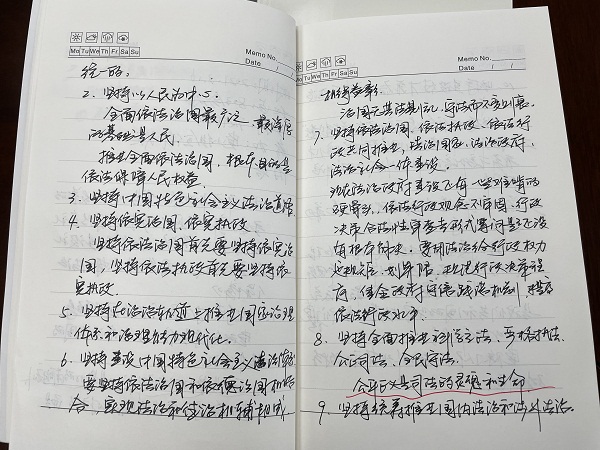 Mo Tu We Th Fr Sa Su
Memo No.
Date / /
2. 坚持以人民为中心。
全面依法治国最广泛、最深厚
的基础是人民。
推进全面依法治国，根本目的是
依法保障人民权益。
3. 坚持中国特色社会主义法治道路
4. 坚持依宪治国、依宪执政
坚持依法治国首先要坚持依宪治
国，坚持依法执政首先要坚持依
宪执政。
5. 坚持在法治轨道上推进国家治理
体系和治理能力现代化。
6. 坚持建设中国特色社会主义法治体系
要坚持依法治国和依德治国相结
合，实现法治和德治相辅相成
Mo Tu We Th Fr Sa Su
Memo No.
Date / /
相得益彰
治国无其法则乱，守法而不变则衰。
7. 坚持依法治国、依法执政、依法行
政共同推进，法治国家、法治政府、
法治社会一体建设。
现在法治政府建设还有一些难啃的
硬骨头，依法行政观念不牢固、行政
决策合法性审查走形式等问题还没
有根本解决，要用法治给行政权力
定规矩、划界限，规范行政决策程
序，健全政府守信践诺机制，提高
依法行政水平。
8. 坚持全面推进科学立法、严格执法、
公正司法、全民守法。
公平正义是司法的灵魂和生命
9. 坚持统筹推进国内法治和涉外法治。